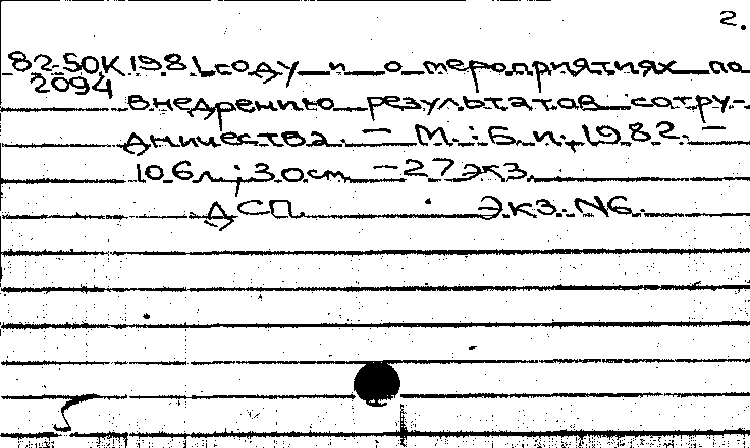 2.
82-50К 1981 году и о мероприятиях по
2094
внедрению результатов сотру-
дничества. - М.: Б.и., 1982. -
106л.; 30см - 27 экз.
ДСП. Экз. N6.